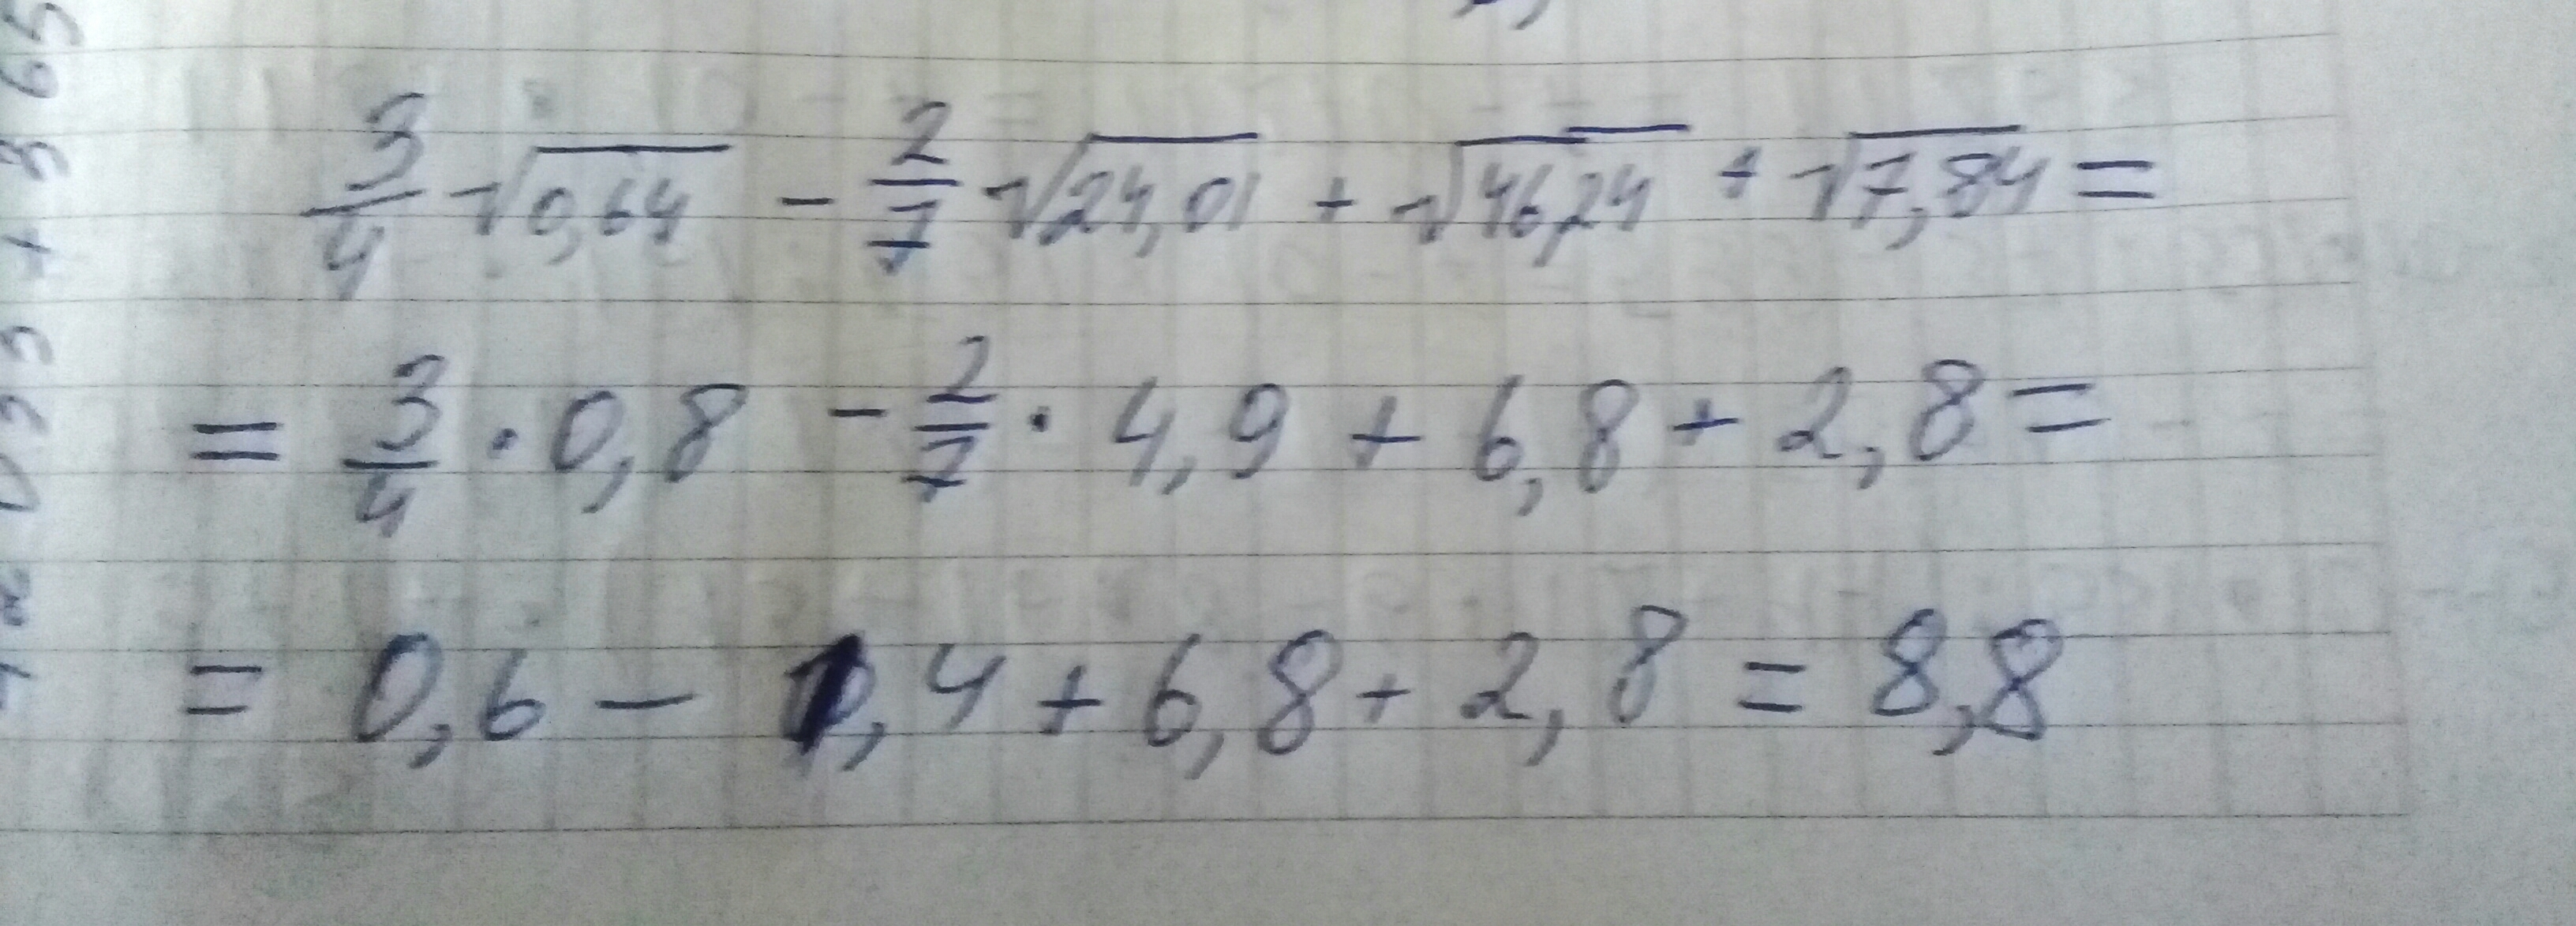 3/4 √0,64 - 2/7 √24,01 + √46,24 + √7,84 =
= 3/4 · 0,8 - 2/7 · 4,9 + 6,8 + 2,8 =
= 0,6 - 1,4 + 6,8 + 2,8 = 8,8